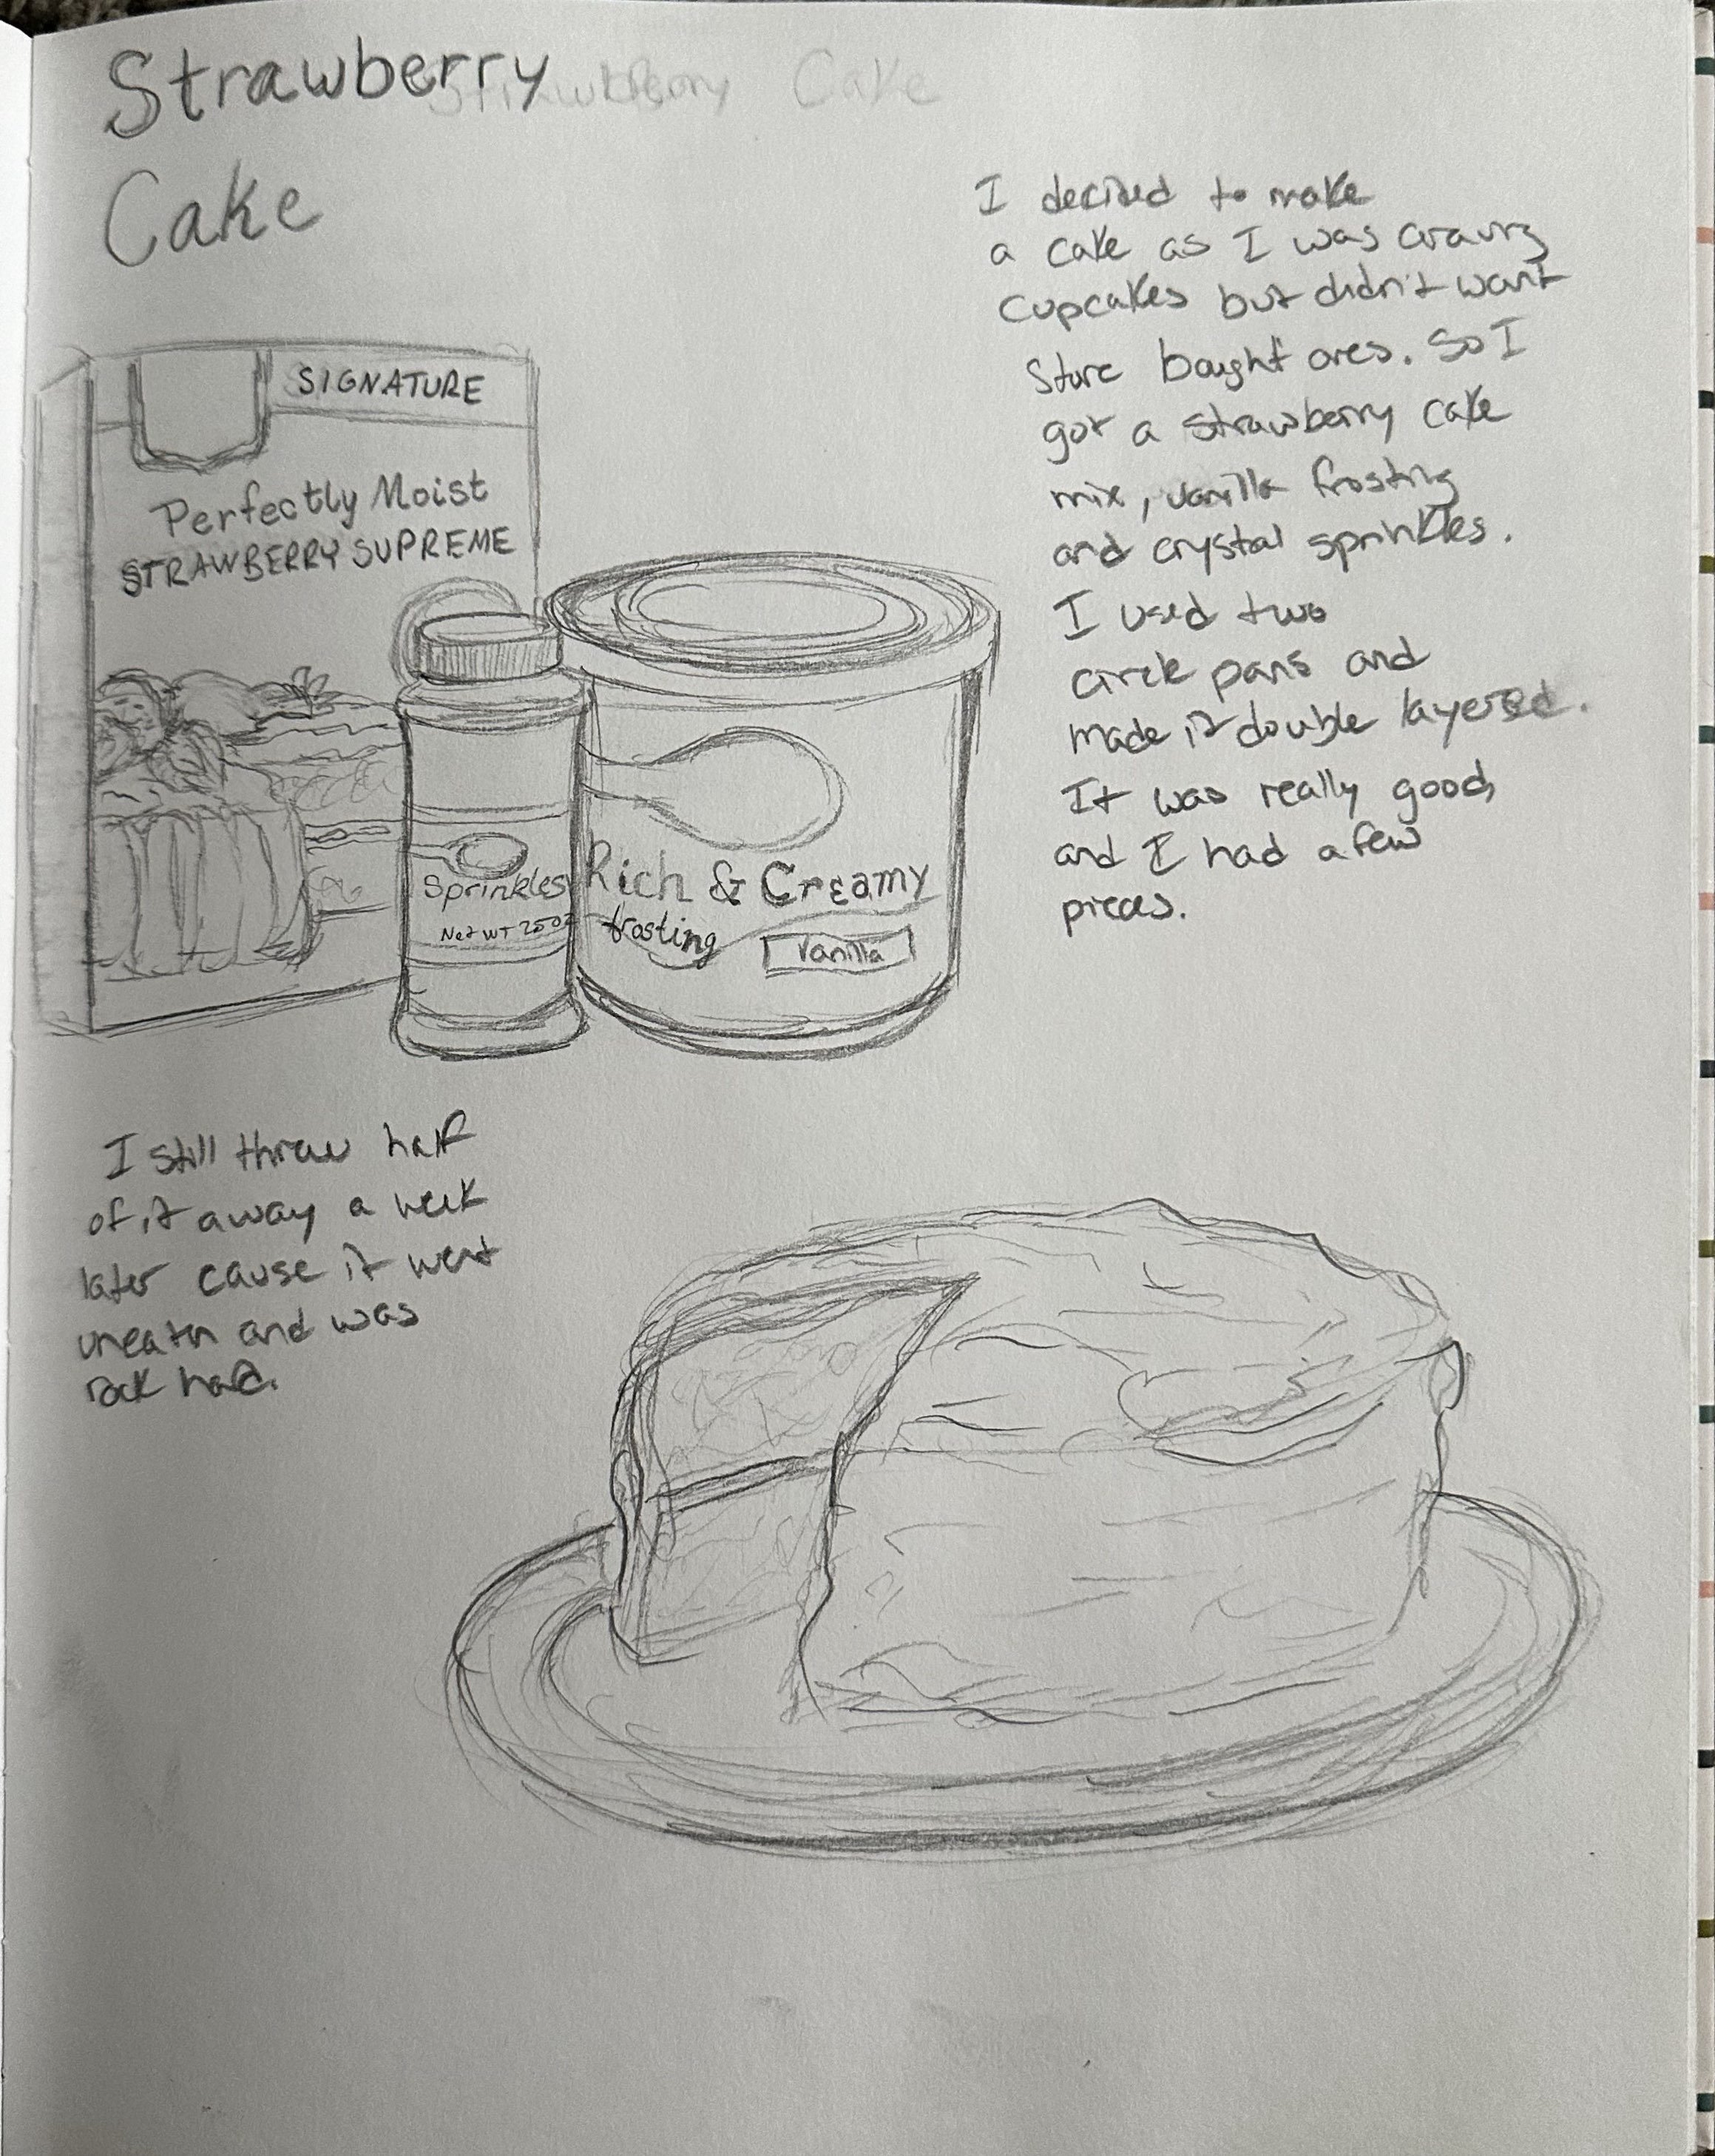 Strawberry
Strawberry Cake
Cake
I decided to make
a cake as I was craving
cupcakes but didn't want
store bought ones. So I
got a strawberry cake
mix, vanilla frosting
and crystal sprinkles.
I used two
circle pans and
made it double layered.
It was really good,
and I had a few
pieces.
SIGNATURE
Perfectly Moist
STRAWBERRY SUPREME
Sprinkles
Net WT 25oz
Rich & Creamy
frosting
Vanilla
I still threw half
of it away a week
later cause it went
uneatn and was
rock hard.